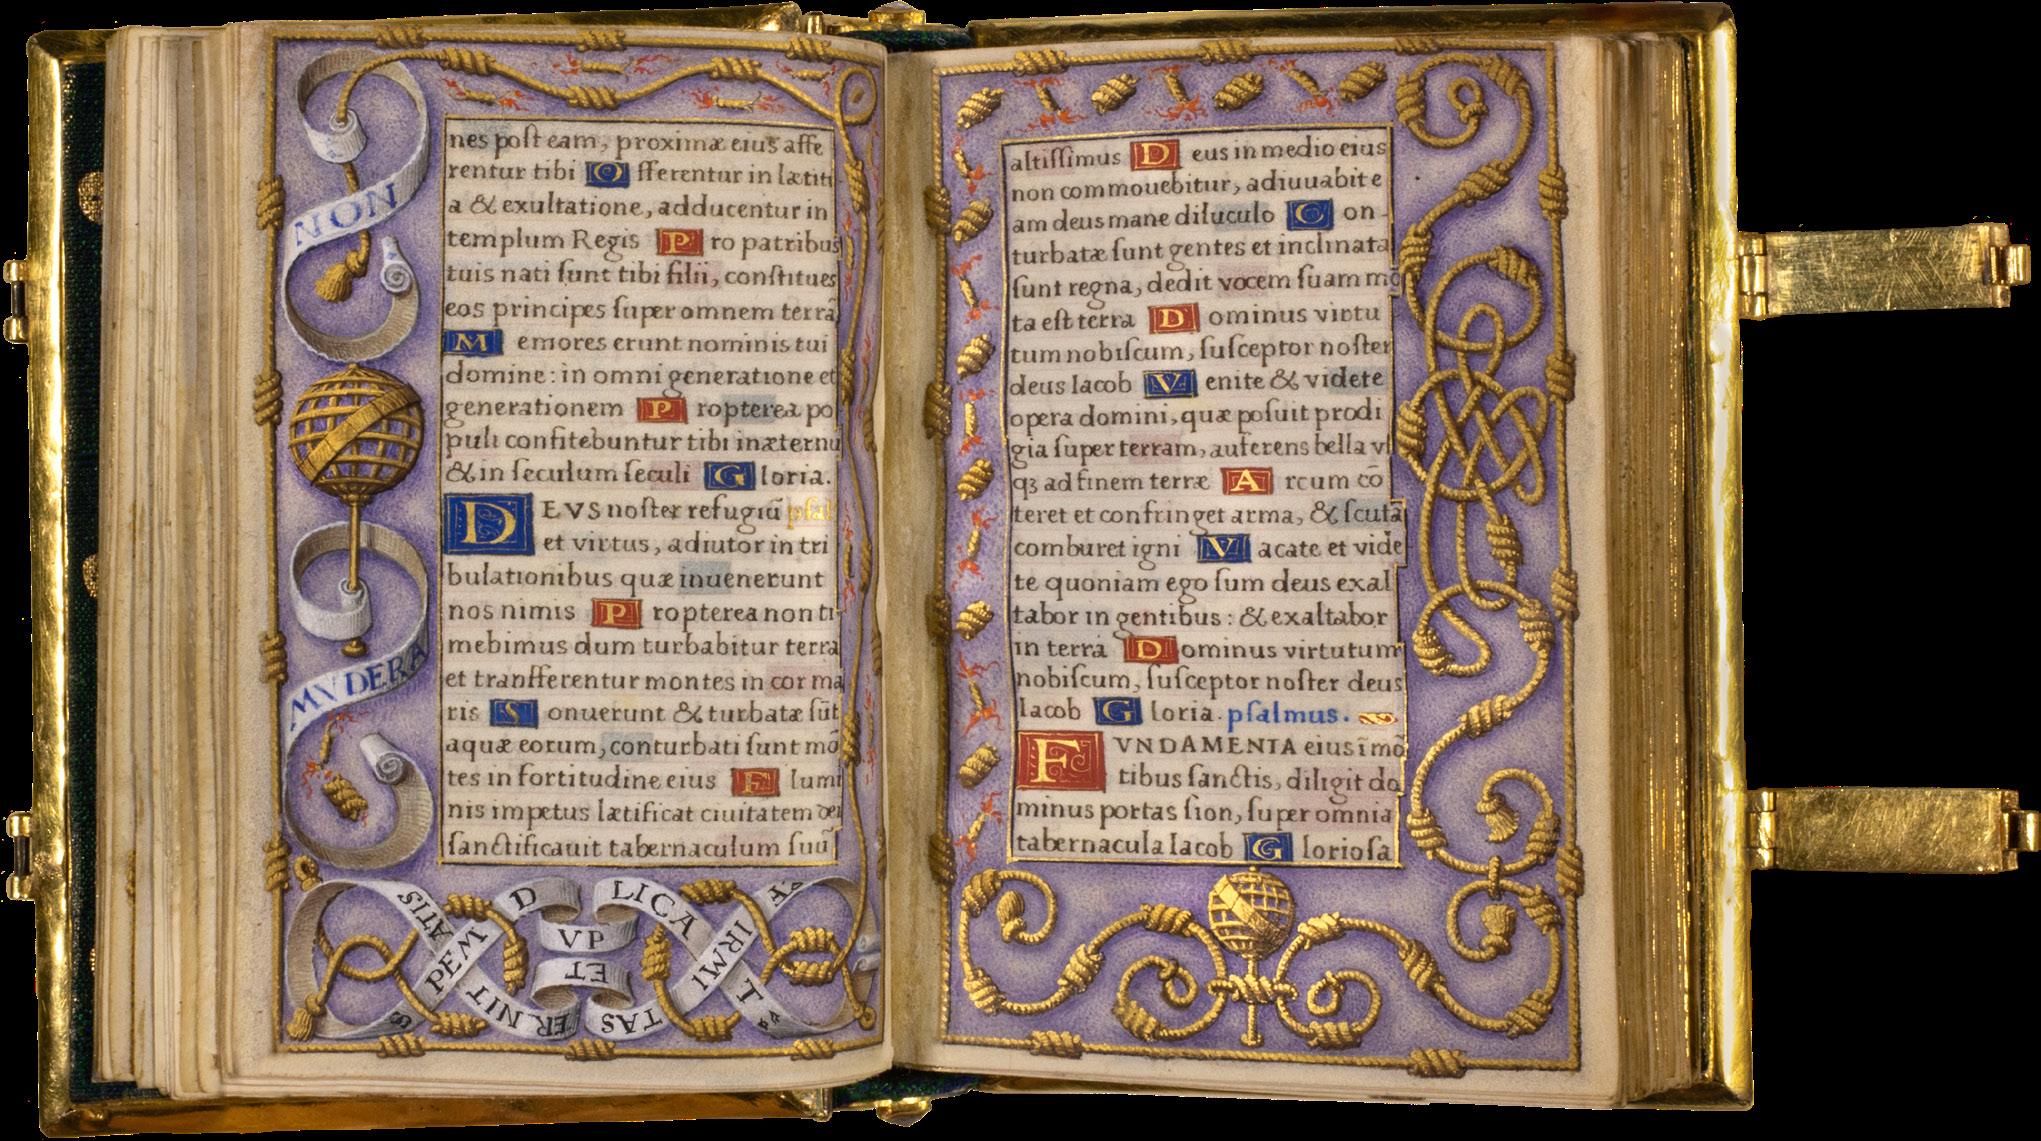 NON
MVDERA
nes post eam, proximæ eius affe
rentur tibi Offerentur in lætiti
a & exultatione, adducentur in
templum Regis Pro patribus
tuis nati sunt tibi filii, constitues
eos principes super omnem terrā
Memores erunt nominis tui
domine: in omni generatione et
generationem Propterea po
puli confitebuntur tibi inæternu
& in seculum seculi Gloria.
DEVS noster refugiū psal
et virtus, adiutor in tri
bulationibus quæ inuenerunt
nos nimis Propterea non ti
mebimus dum turbabitur terra
et transferentur montes in cor ma
ris Sonuerunt & turbatæ sūt
aquæ eorum, conturbati sunt mō
tes in fortitudine eius Flumi
nis impetus lætificat ciuitatem dei
sanctificauit tabernaculum suū
D VP LICA
ET
FIRMI TAS
ET ERNIT ATIS
altissimus Deus in medio eius
non commouebitur, adiuuabit e
am deus mane diluculo Con-
turbatæ sunt gentes et inclinata
sunt regna, dedit vocem suam mo
ta est terra Dominus virtu
tum nobiscum, susceptor noster
deus Iacob Venite & videte
opera domini, quæ posuit prodi
gia super terram, auferens bella vs
qȝ ad finem terræ Arcum cō
teret et confringet arma, & scuta
comburet igni Vacate et vide
te quoniam ego sum deus exal
tabor in gentibus: & exaltabor
in terra Dominus virtutum
nobiscum, susceptor noster deus
Iacob Gloria. psalmus.
FVNDAMENTA eius ī mō
tibus sanctis, diligit do
minus portas sion, super omnia
tabernacula Iacob Gloriosa